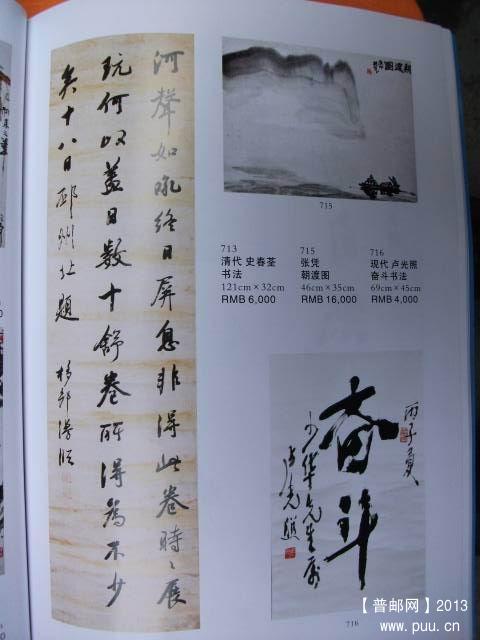 河聲如吼終日屏息非得此卷時時展
玩何以蓋日數十舒卷所得為不少
矣十八日邳州止題
朝渡圖
715
713
清代 史春荃
书法
121cm×32cm
RMB 6,000
715
张凭
朝渡图
46cm×35cm
RMB 16,000
716
现代 卢光照
奋斗书法
69cm×45cm
RMB 4,000
奋斗
丙子夏
少华先生属
卢光照
716
【普邮网】2013
www.puu.cn